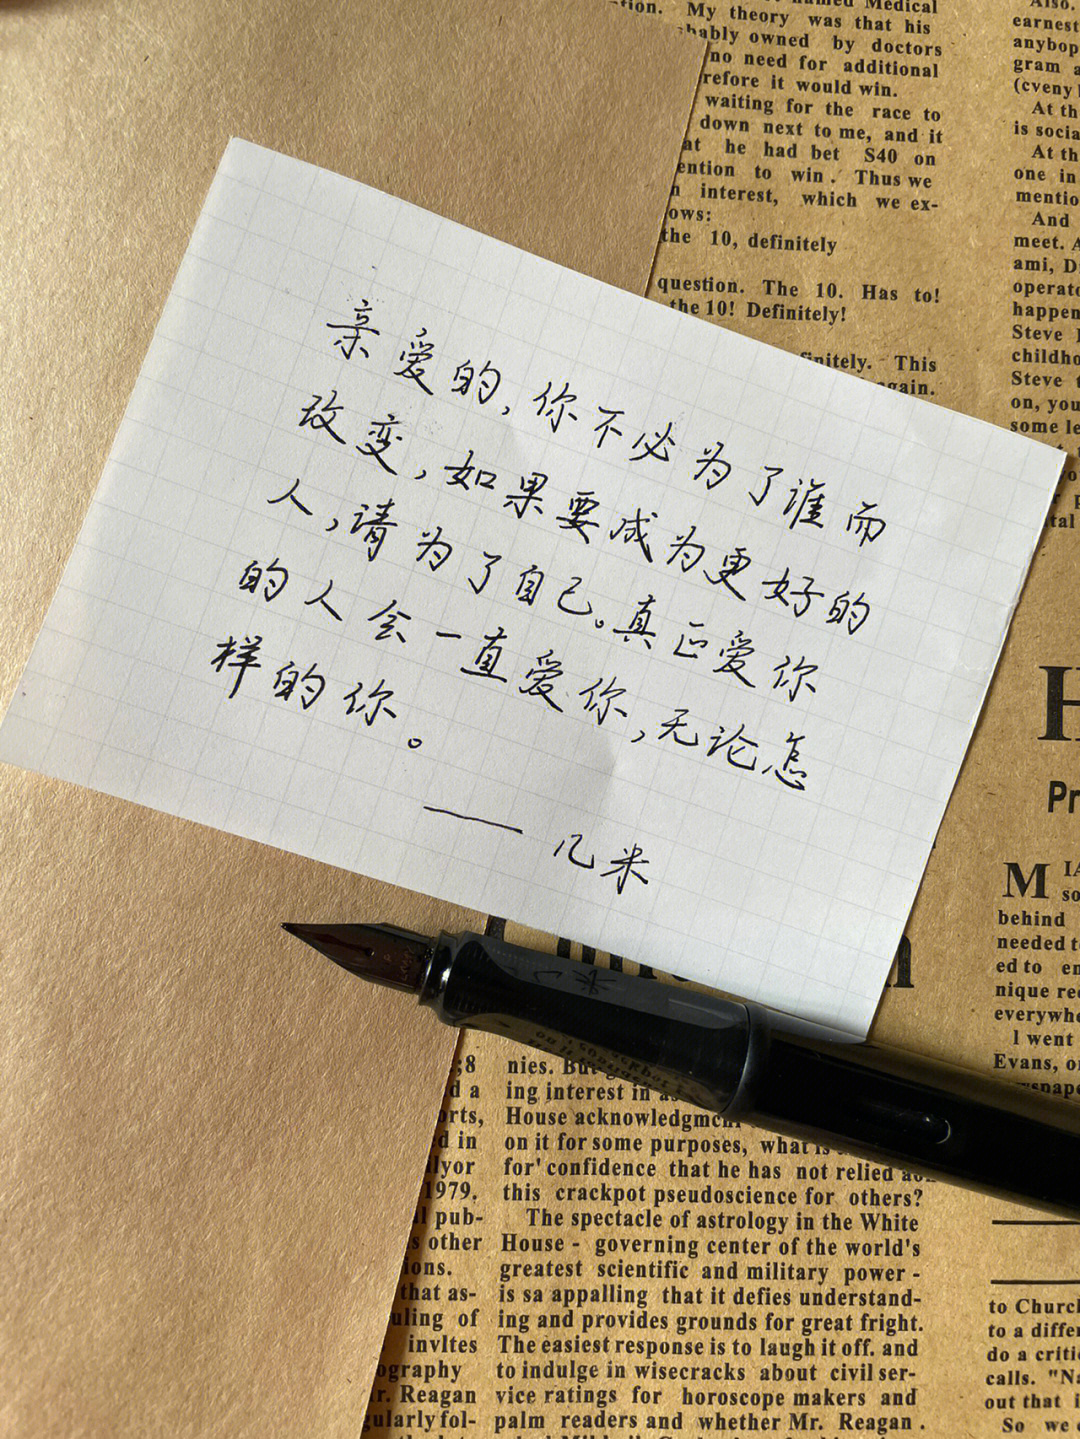 亲爱的,你不必为了谁而
改变,如果要成为更好的
人,请为了自己。真正爱你
的人会一直爱你,无论怎
样的你。
——几米
My theory was that his
owned by doctors
no need for additional
it would win.
waiting for the race to
down next to me, and it
he had bet S40 on
to win. Thus we
interest, which we ex-
the 10, definitely
question. The 10. Has to!
the 10! Definitely!
This
Also.
earnest
gram
At
is
At
one in
And
meet.
Steve
Steve
on, you
some
H
Pr
M
behind
needed
ed to
nique
I went
Evans,
;8
d a
in
1979.
pub-
other
that as-
of
invltes
Reagan
nies.
ing interest in
House
on it for some purposes, what
for' confidence that he has not relied
this crackpot pseudoscience for others?
The spectacle of astrology in the White
House - governing center of the world's
greatest scientific and military power -
is sa appalling that it defies understand-
ing and provides grounds for great fright.
The easiest response is to laugh it off. and
to indulge in wisecracks about civil ser-
vice ratings for horoscope makers and
palm readers and whether Mr. Reagan .
to
to a
do a
calls.
out that
So we